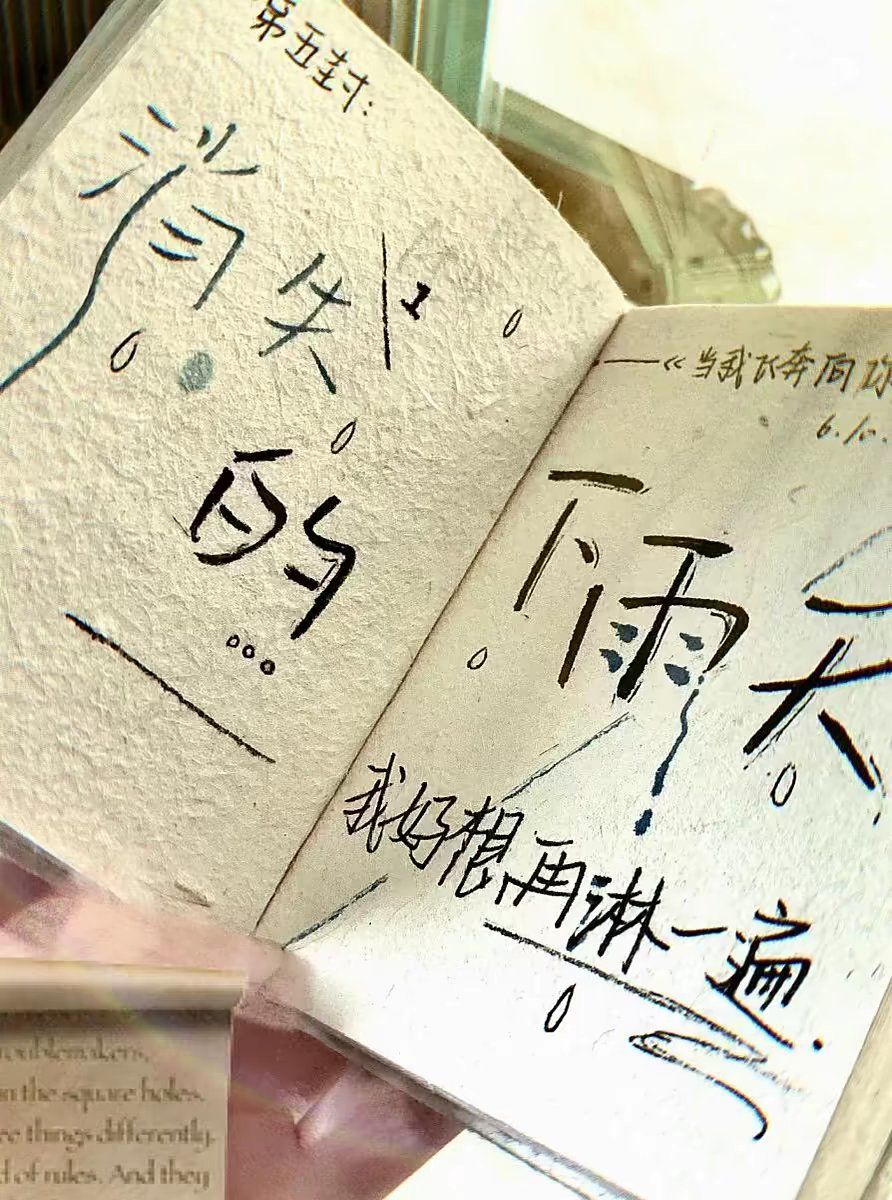 第五封：
消失
的...
——《当我飞奔向你
6.10.
下雨天
我好想再淋一遍.
roublemakers.
n the square holes.
ee things differently.
d of rules. And they